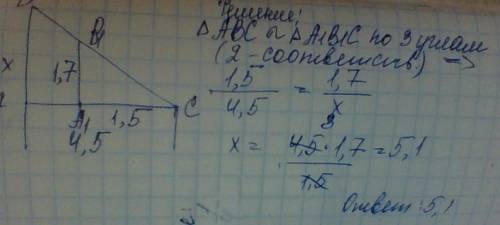 B1
x
1,7
A1
1,5
C
4,5
Решение:
△ABC ∾ △A1B1C по 3 углам
(2 - соответств.) ⇒
1,5/4,5 = 1,7/x
3
x = 4,5 · 1,7/1,5 = 5,1
Ответ: 5,1